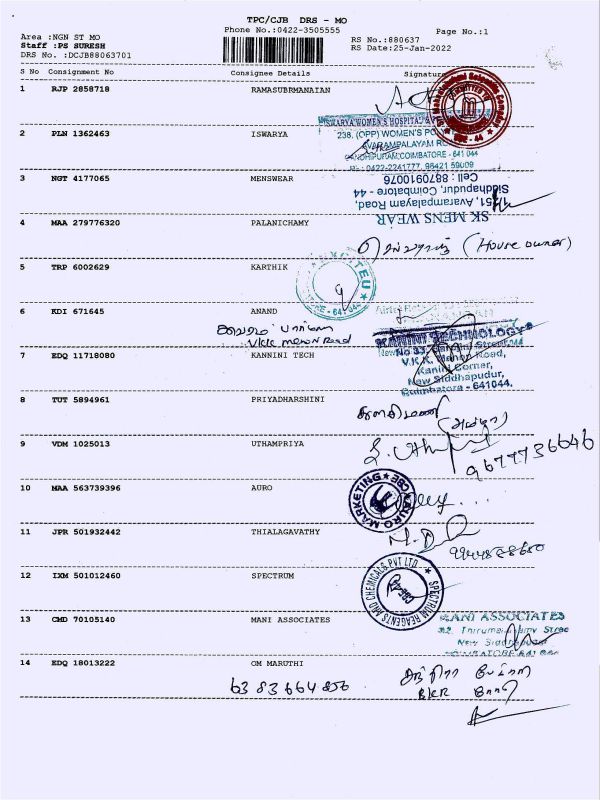 TPC/CJB DRS - MO
Phone No.:0422-3505555
Page No.:1
Area :NGN ST MO
RS No.:880637
Staff :PS SURESH
RS Date:25-Jan-2022
DRS No. :DCJB88063701
S No Consignment No Consignee Details Signature
1 RJP 2858718 RAMASUBRMANAIAN
2 PLN 1362463 ISWARYA
238, (OPP) WOMEN'S
AVARAMPALAYAM
GANDHIPURAM, COIMBATORE - 641 044
3 NGT 4177065 MENSWEAR
SK MENS WEAR
1/51, Avarampalayam Road,
Siddhapudur, Coimbatore - 44
Cell : 8870910076
4 MAA 279776320 PALANICHAMY
(House owner)
5 TRP 6002629 KARTHIK
6 KDI 671645 ANAND
VKK menon Road
7 EDQ 11718080 KANNINI TECH
KANINI TECHNOLOGY
V.K.K. Menon Road,
Kanini Corner,
New Siddhapudur,
Coimbatore - 641044.
8 TUT 5894961 PRIYADHARSHINI
9 VDM 1025013 UTHAMPRIYA
9677736646
10 MAA 563739396 AURO
AURO MARKETING
11 JPR 501932442 THIALAGAVATHY
12 IXM 501012460 SPECTRUM
SPECTRUM REAGENTS AND CHEMICALS PVT LTD
13 CMD 70105140 MANI ASSOCIATES
MANI ASSOCIATES
New
14 EDQ 18013222 OM MARUTHI
6383664856
BKR